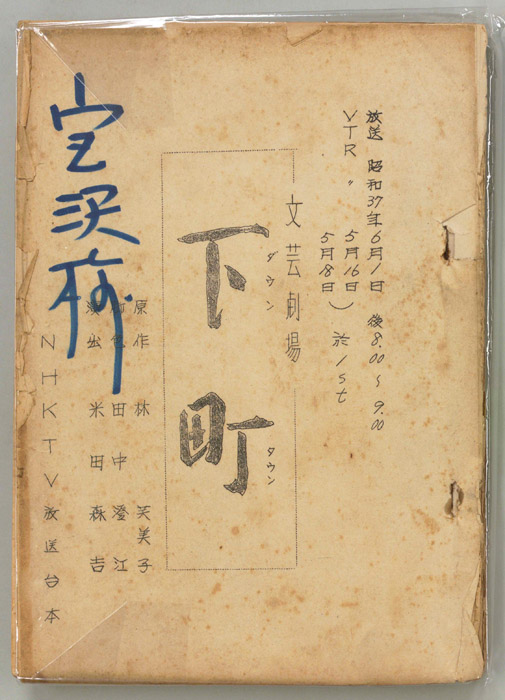 放送 昭和37年6月1日 後8.00～9.00
VTR 〃 5月16日
5月18日 ) 於1st
文芸劇場
下町
ダウン タウン
原作 林 芙美子
田中澄江
演出 米田森吉
NHKTV放送台本